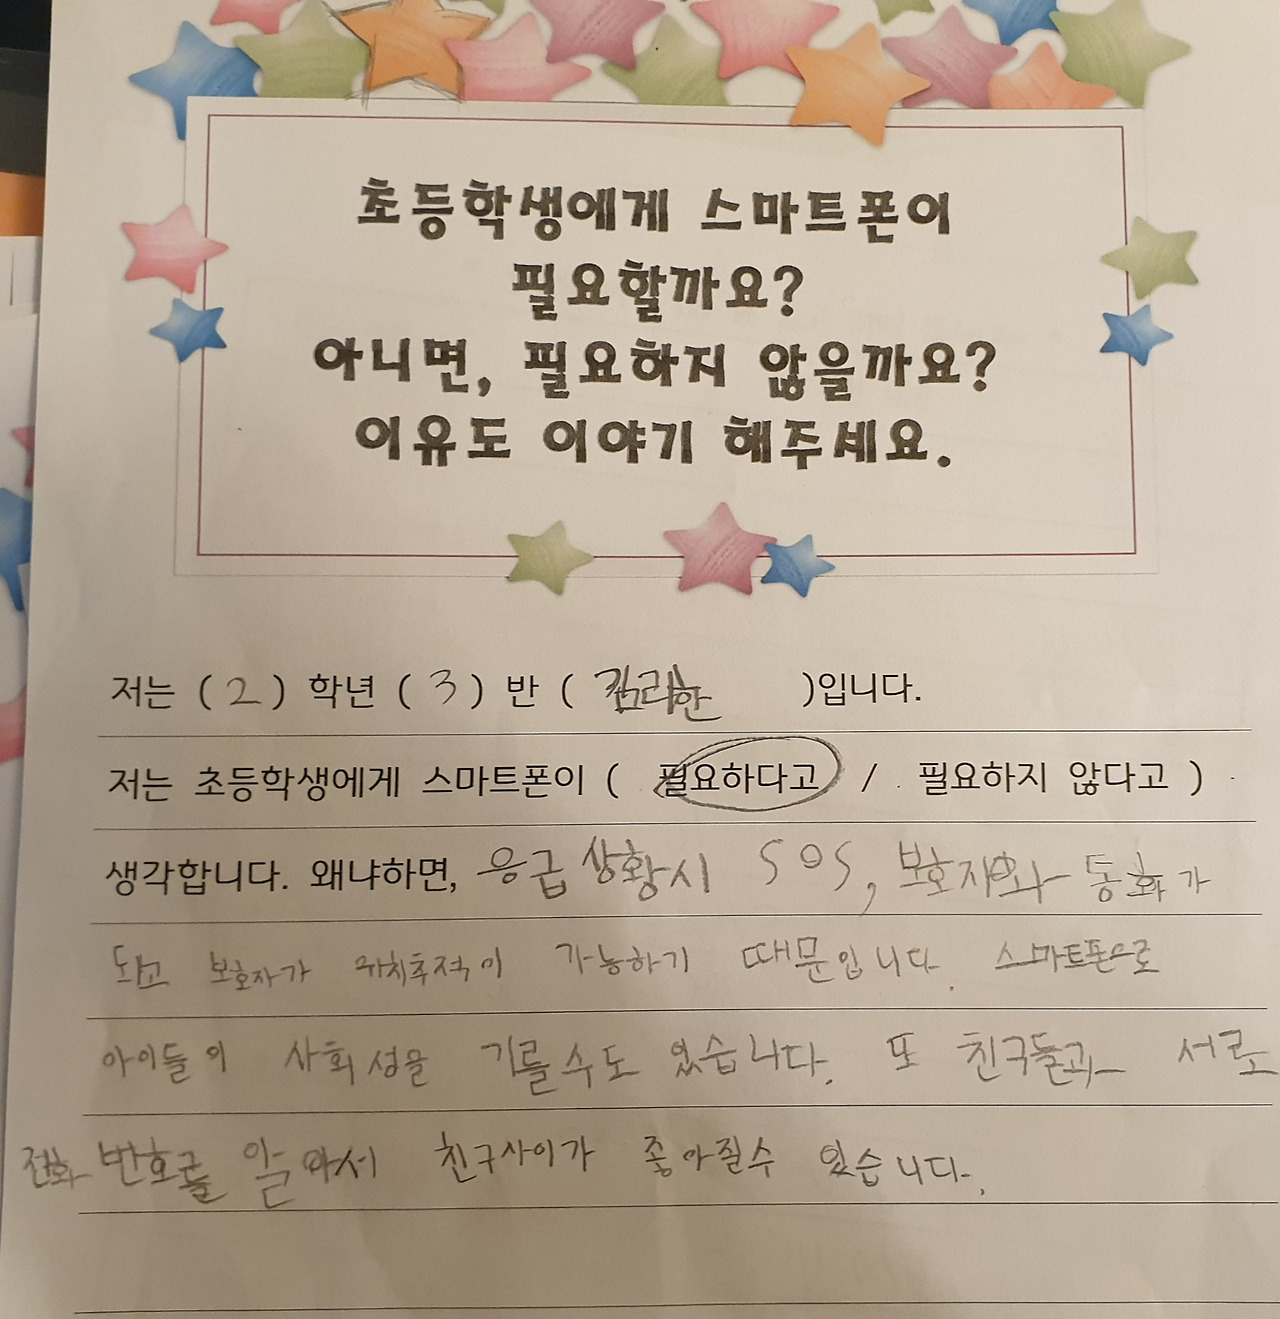 초등학생에게 스마트폰이
필요할까요?
아니면, 필요하지 않을까요?
이유도 이야기 해주세요.
저는 ( 2 ) 학년 ( 3 ) 반 ( 김리한 )입니다.
저는 초등학생에게 스마트폰이 ( 필요하다고 / 필요하지 않다고 )
생각합니다. 왜냐하면, 응급 상황시 SOS, 보호자와 통화가
되고 보호자가 위치추적이 가능하기 때문입니다. 스마트폰으로
아이들이 사회성을 기를수도 있습니다. 또 친구들과 서로
전화 번호를 알아서 친구사이가 좋아질수 있습니다.